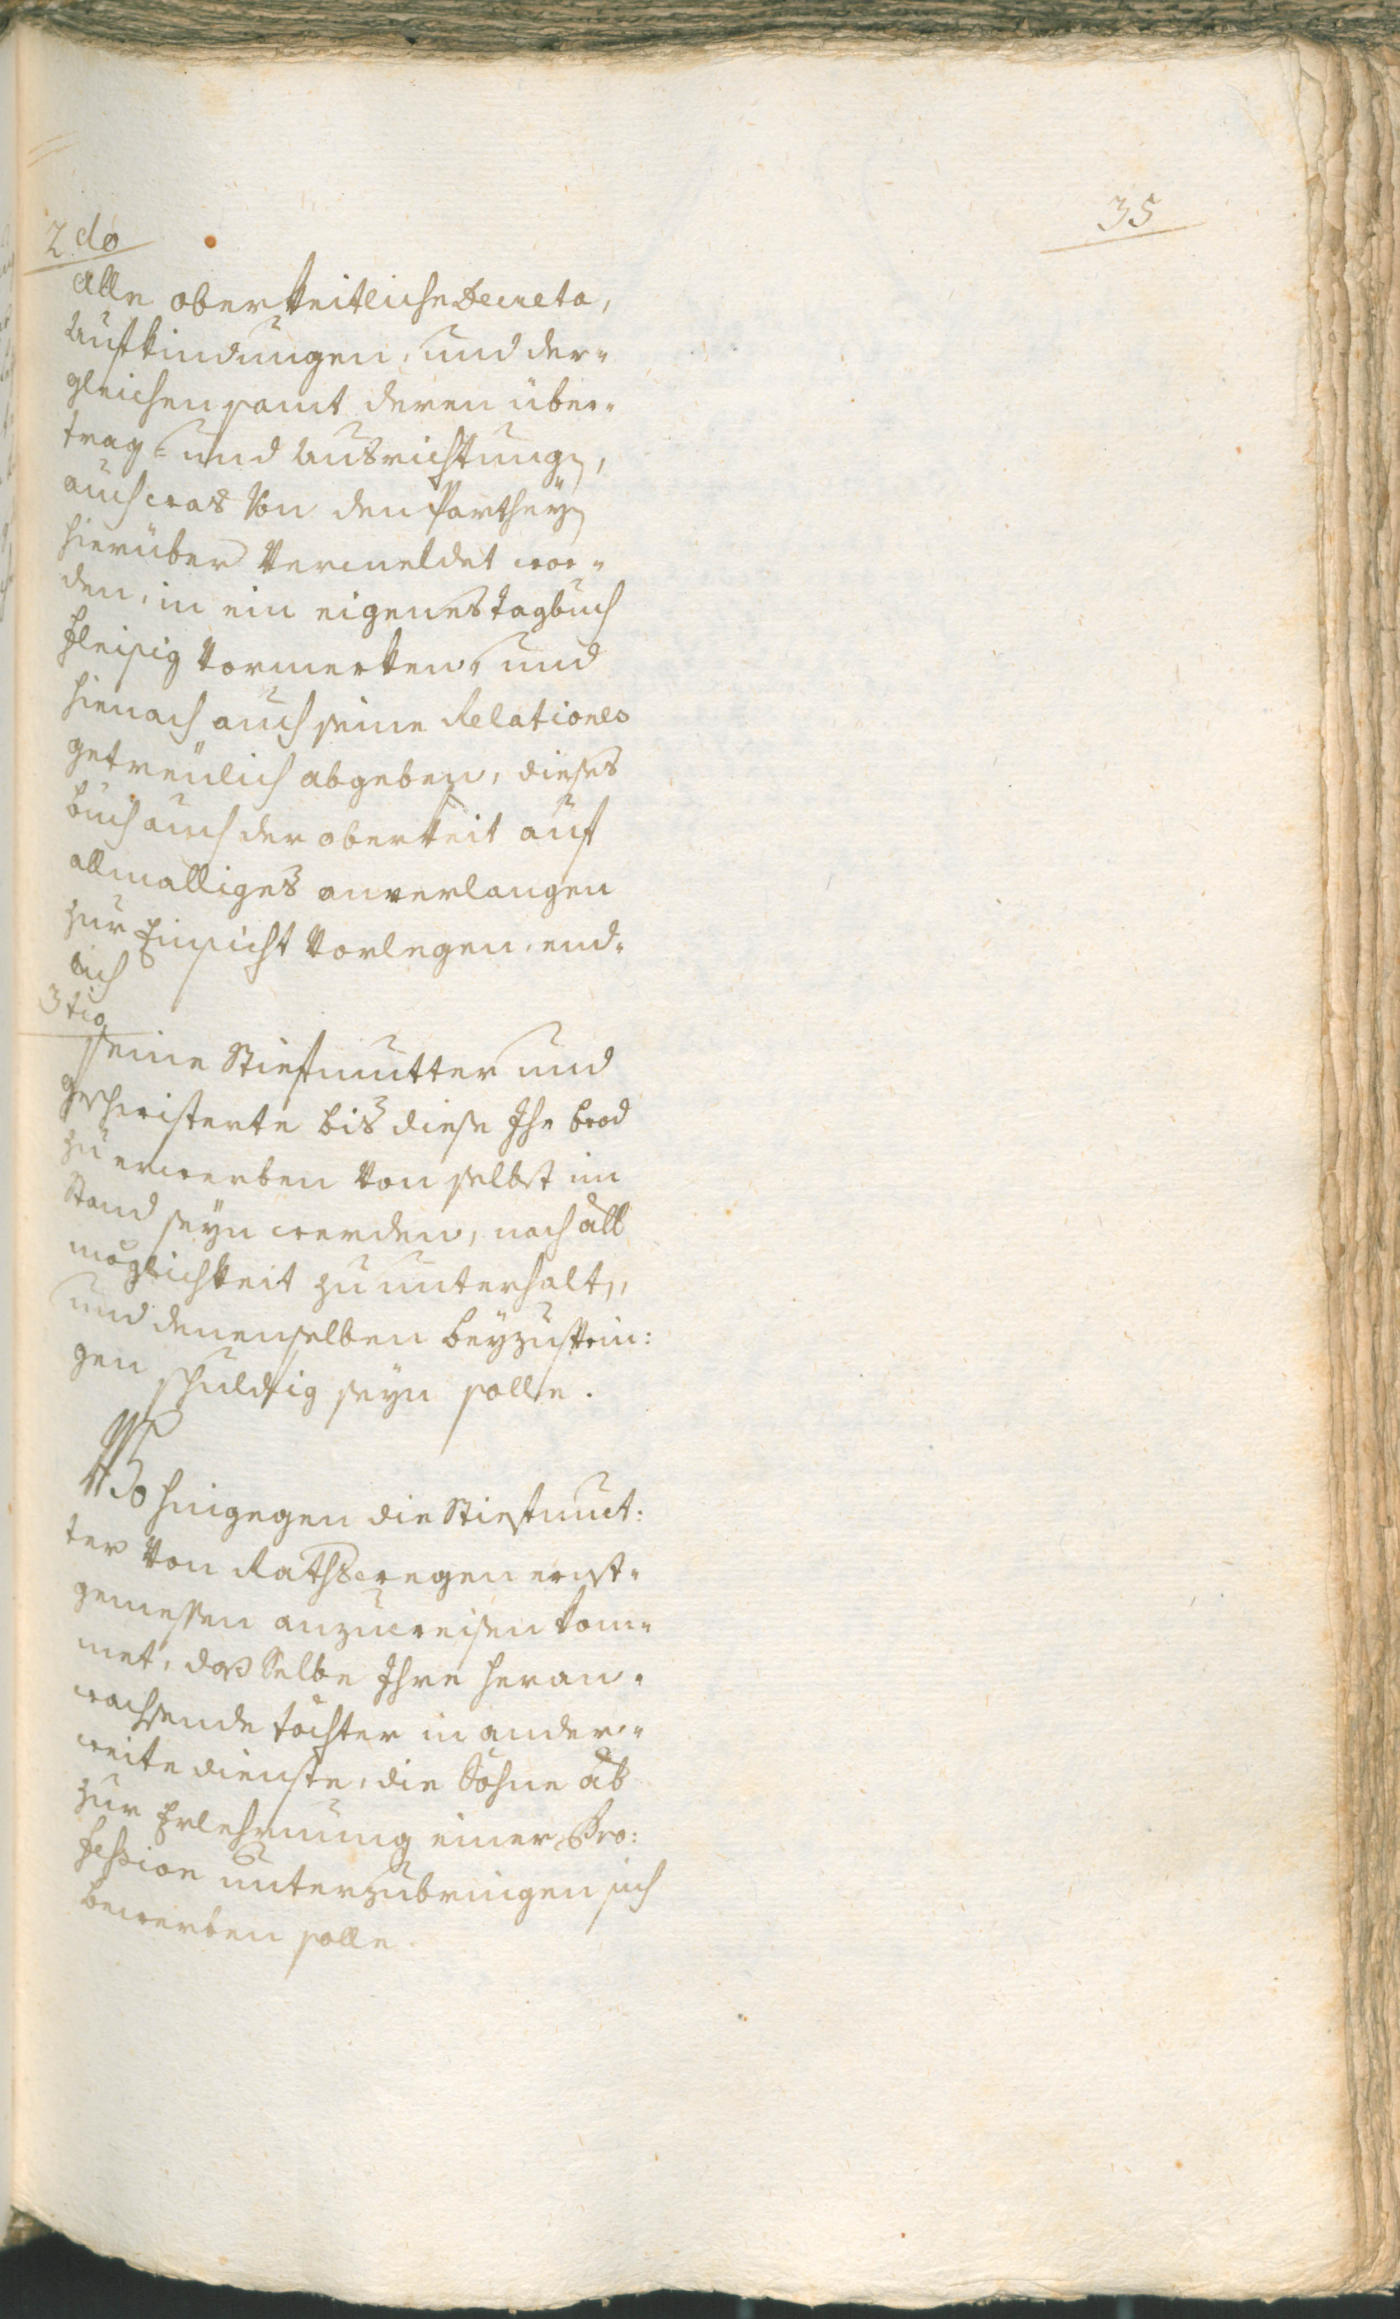 35
2do
Alle oberkeitliche Decreta,
Aufkindungen, und der-
gleichen samt deren über-
trag- und Ausrichtung,
auch was Von den Partheÿ
hierüber Vermeldet wor-
den, in ein eigenes tagbuch
fleisig Vormerken, und
hienach auch seine Relationes
getreülich abgeben, dieses
buch auch der oberkeit auf
allmalliges anverlangen
zur Einsicht Vorlegen, end-
lich
3tio
seine Stiefmutter und
geschwisterte bis diese Ihr brod
zu erwerben Von selbst im
Stand seÿn werden, nach all
möglichkeit zu unterhalt,
und denenselben beÿzusprin:
gen schuldig seÿn solle.
Wo hingegen die Stiefmut:
ter Von Rathswegen ernst-
gemessen anzuweisen kom-
met, daß Selbe Ihre heran-
wachsende töchter in ander-
weite dienste, die Söhne ab
zur Erlehrnung einer Pro:
fession unterzubringen sich
bewerben solle.